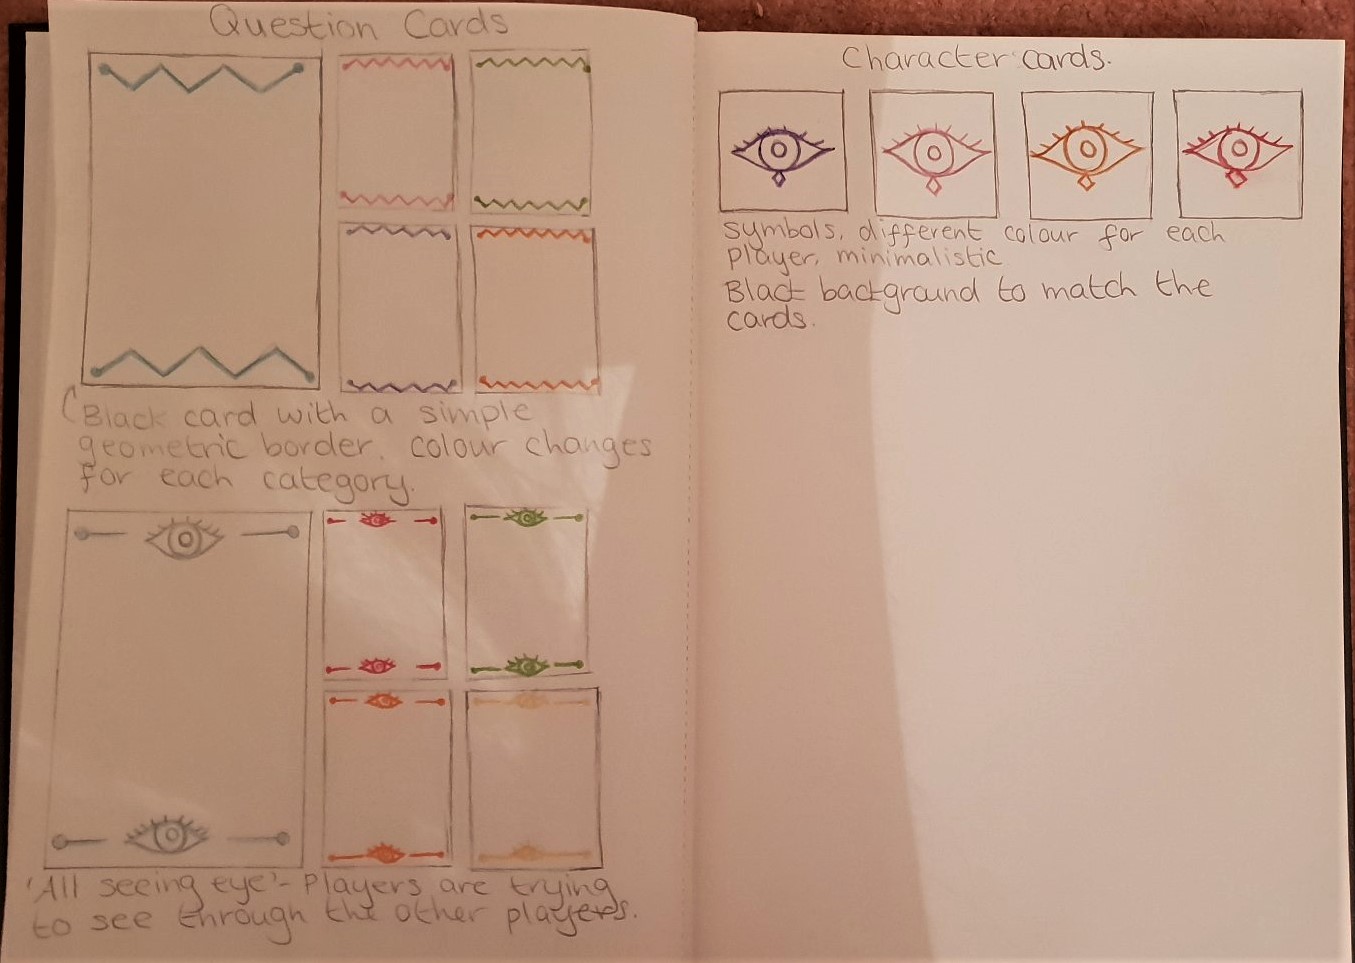 Question Cards
Black card with a simple
geometric border. colour changes
for each category.
'All seeing eye' - Players are trying
to see through the other players.
Character cards.
symbols, different colour for each
player, minimalistic
Black background to match the
cards.